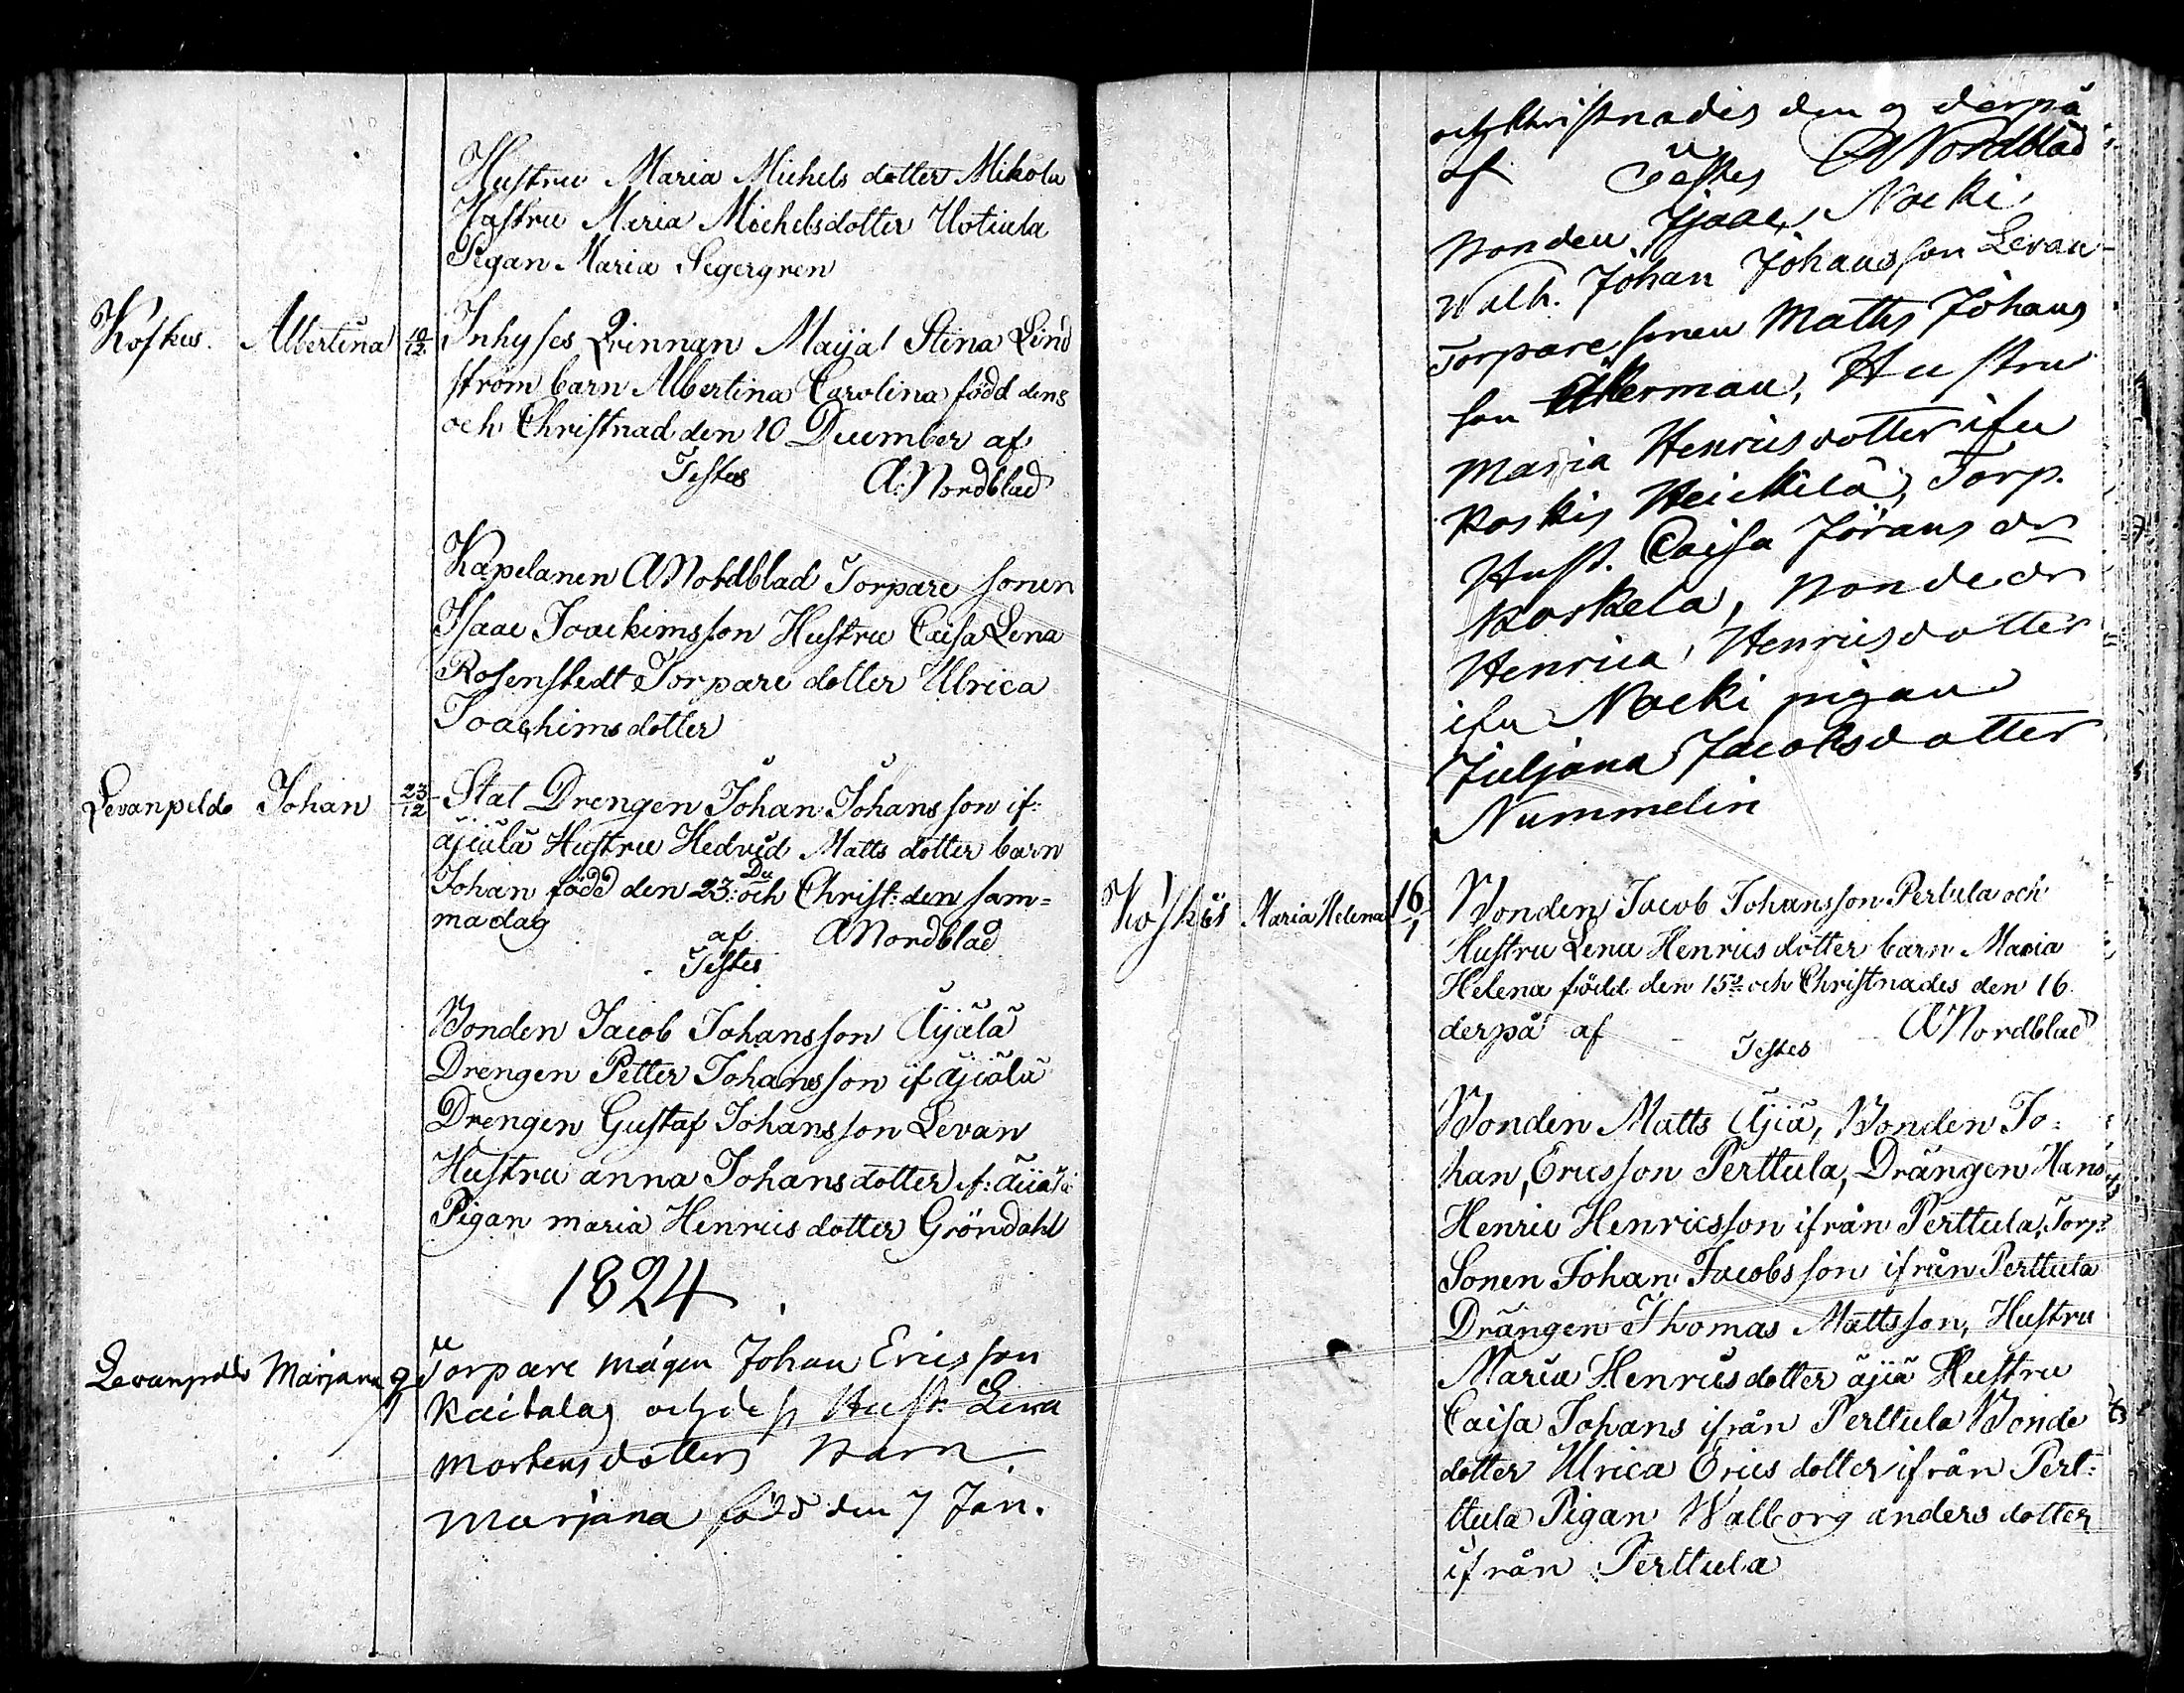 Hustru Maria Michels dotter Mikola
Hustru Maria Michelsdotter Uotiala
Pigan Maria Segergren
Koskis. Albertina 10/12 Inhyses Qvinnan Maija Stina Lind
ström barn Albertina Carolina född den 8
och Christnad den 10 December af
Testes A: Nordblad
Kapelanen A Nordblad Torpare sonen
Isaac Joackimsson Hustru Caisa Lena
Rosenstedt Torpare dotter Ulrica
Joachims dotter
Levanpeldo Johan 23/12 Stat Drengen Johan Johansson if:
äjälä Hustru Hedvid Matts dotter barn
Johan född den 23: De och Christ: den sam=
ma dag af A Nordblad
Testes
Bonden Jacob Johansson Äijälä
Drengen Petter Johansson if äjälä
Drengen Gustaf Johansson Levan
Hustru anna Johans dotter if: äijälä
Pigan maria Henrics dotter Gröndahl
1824
Levanpeldo Marjana 9/1 Torpare mågen Johan Ericsson
Kaitala och dess Hust. Lina
Mortensdotters Barn
Marjana föld den 7 Jan.
och Christnades den 9 derpå
af Testes A Nordblad
Bonden Isaac Nocki
Walb. Johan Johansson Levan-
Torpare sonen Matts Johans
son Åkerman, Hustru
Maria Henricsdotter ifrn
Koskis Heickilä, Torp.
Hust. Caisa Jörans dr
Korkela, Bonde dr
Henrica Henricsdotter
ifrn Nocki pigan
Juljana Jacobsdotter
Nummelin
Koskis Maria Helena 16/1 Bonden Jacob Johansson Pertula och
Hustru Lena Henrics dotter barn Maria
Helena född den 15de och Christnades den 16
derpå af A Nordblad
Testes
Bonden Matts Äjiä, Bonden Jo=
han, Ericsson Perttula, Drängen Hans
Henric Henricsson ifrån Perttula, Torp:
Sonen Johan Jacobsson ifrån Perttula
Drängen Thomas Mattsson, Hustru
Maria Henricsdotter äjiä Hustru
Caisa Johans ifrån Perttula Bonde
dotter Ulrica Erics dotter ifrån Pert=
ttula Pigan Walborg anders dotter
ifrån Perttula